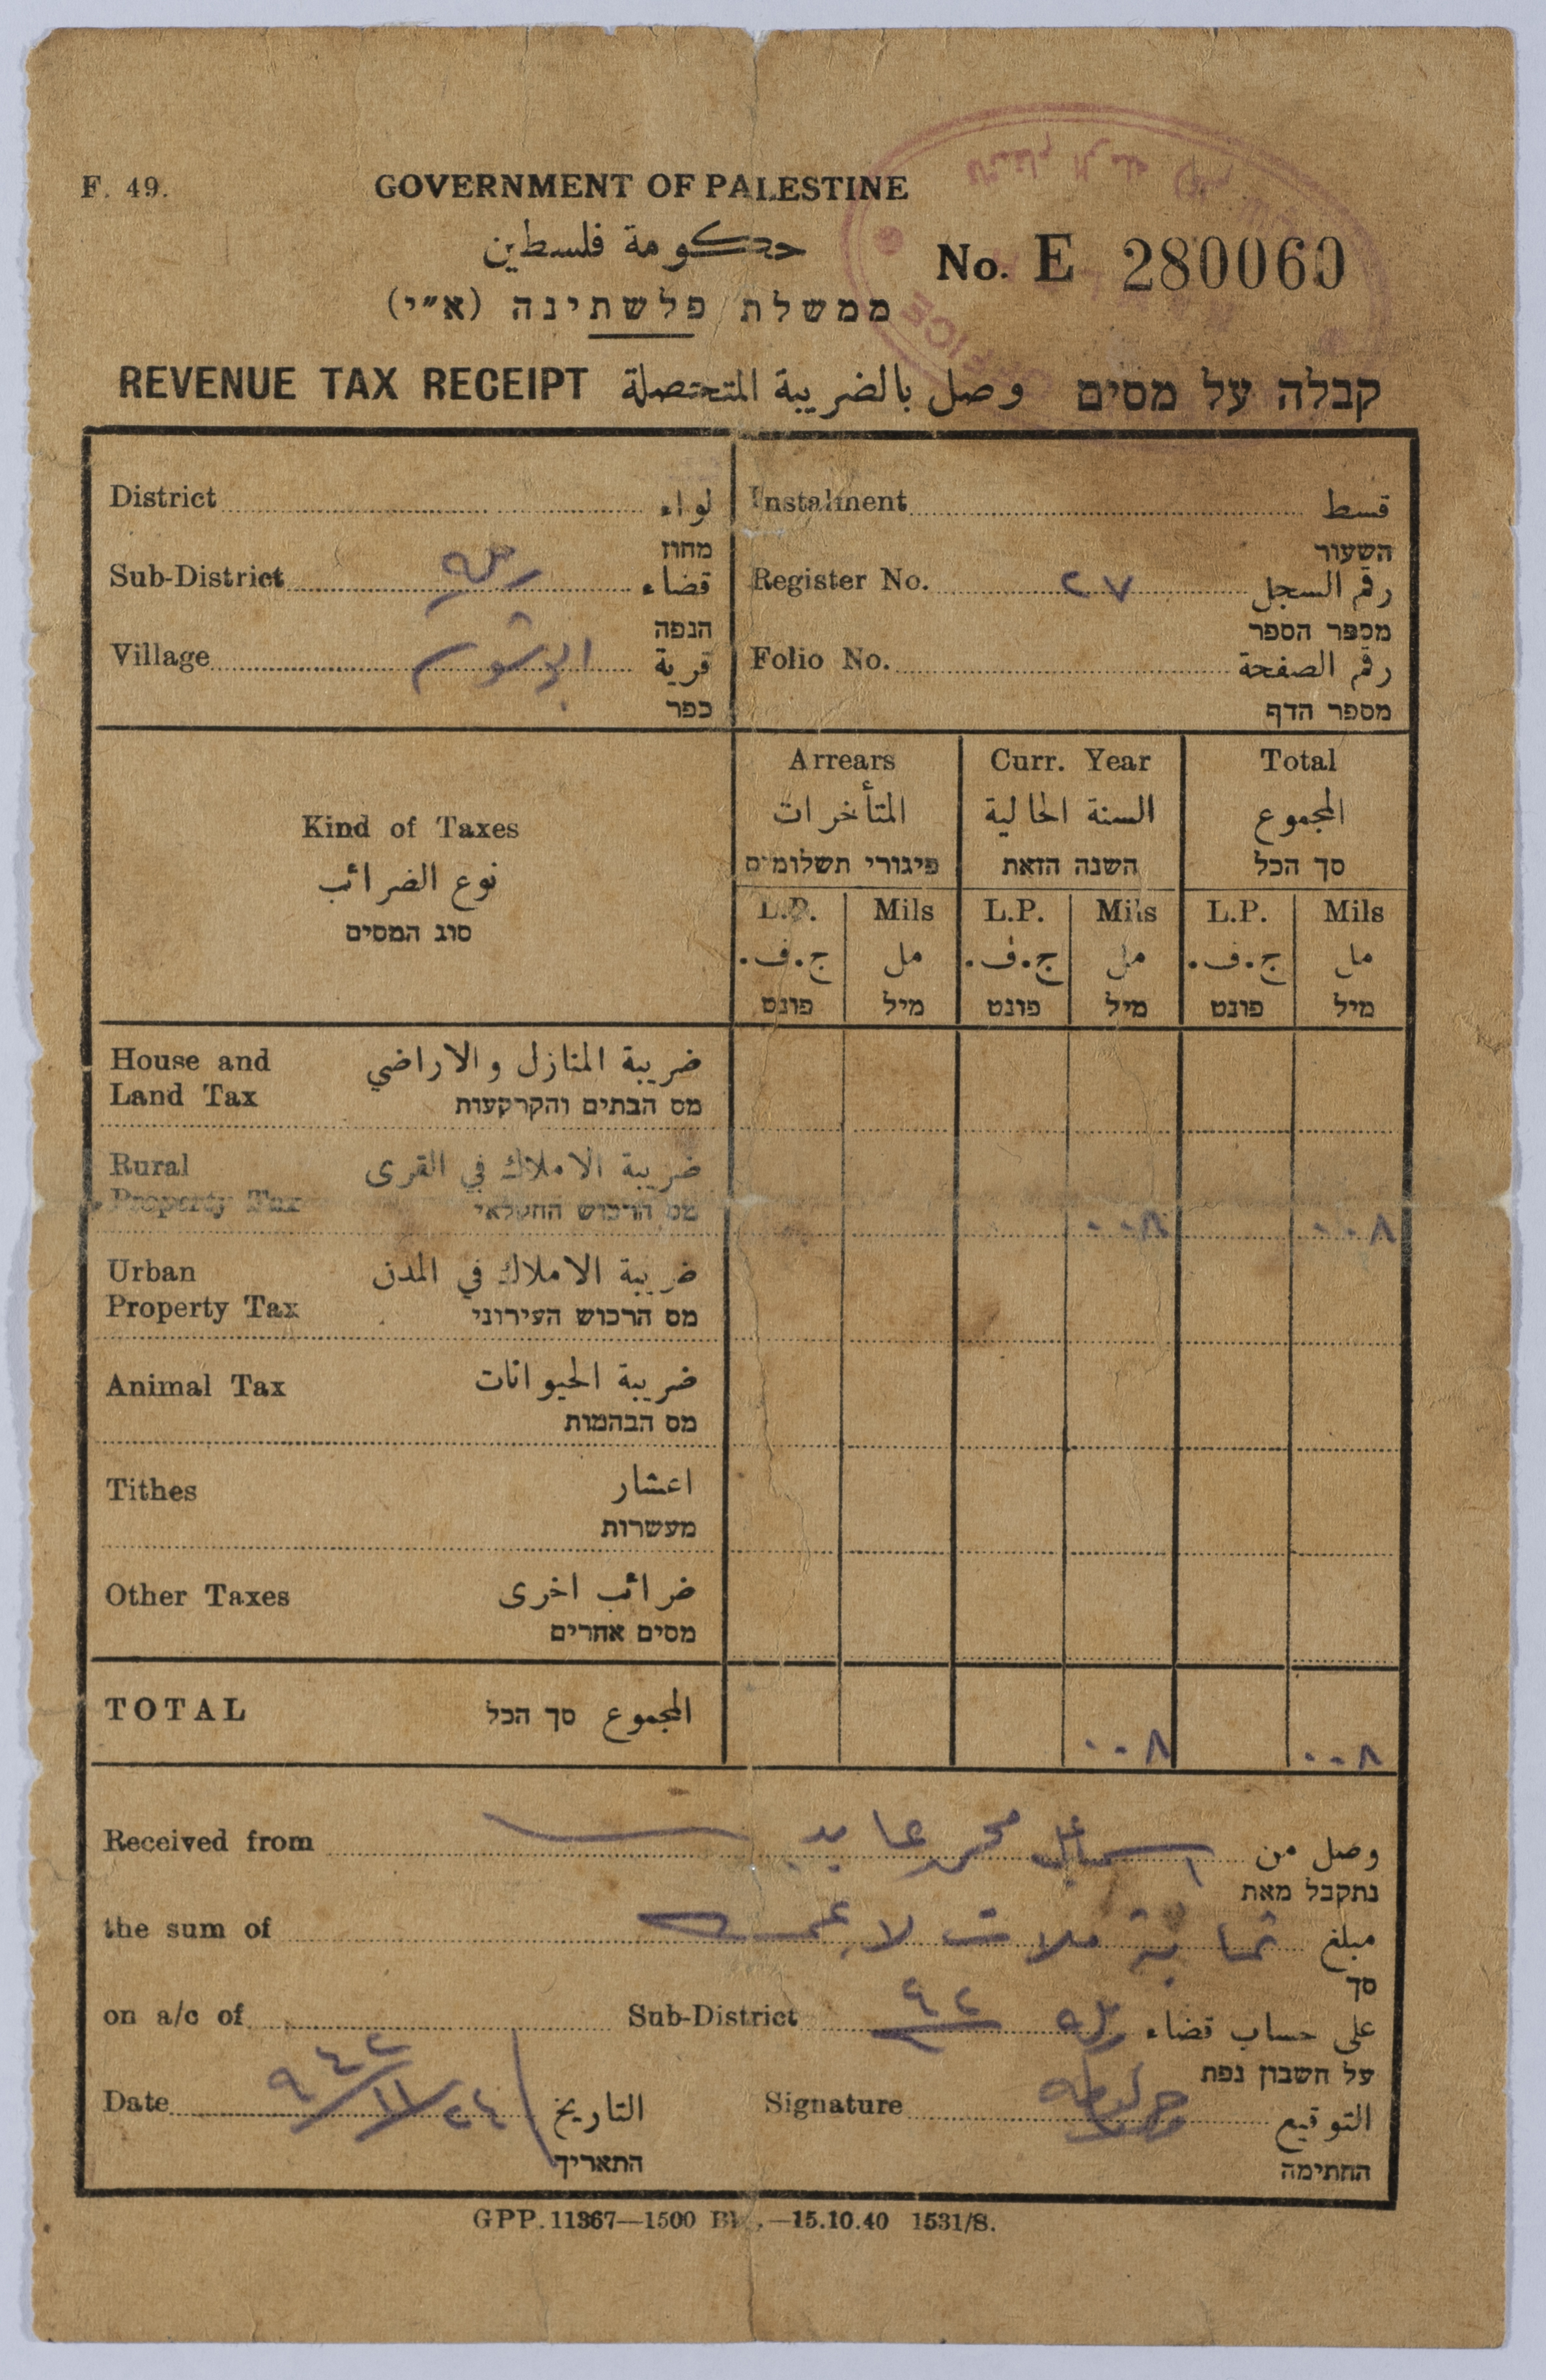 F. 49.
GOVERNMENT OF PALESTINE
حكومة فلسطين
ממשלת פלשתינה (א״י)
No. E 280060
OFFICE
REVENUE TAX RECEIPT وصل بالضريبة المتحصلة קבלה על מסים
District لواء
מחוז
Sub-District رمله قضاء
הנפה
Village قرية
כפר
Instalment قسط
השעור
Register No. ٢٧ رقم السجل
מספר הספר
Folio No. رقم الصفحة
מספר הדף
Kind of Taxes
نوع الضرائب
סוג המסים
Arrears Curr. Year Total
المتأخرات السنة الحالية المجموع
פיגורי תשלומים השנה הזאת סך הכל
L.P. Mils L.P. Mils L.P. Mils
ج.ف. مل ج.ف. مل ج.ف. مل
פונט מיל פונט מיל פונט מיל
House and ضريبة المنازل والاراضي
Land Tax מס הבתים והקרקעות
Rural ضريبة الاملاك في القرى
Property Tax מס הרכוש החקלאי ٠٠٨ ٠٠٨
Urban ضريبة الاملاك في المدن
Property Tax מס הרכוש העירוני
Animal Tax ضريبة الحيوانات
מס הבהמות
Tithes اعشار
מעשרות
Other Taxes ضرائب اخرى
מסים אחרים
TOTAL المجموع סך הכל ٠٠٨ ٠٠٨
Received from اسماعيل محمد عايد وصل من
נתקבל מאת
the sum of ثمانية ملات لا غير مبلغ
סך
on a/c of Sub-District رمله ٩٤٢ على حساب قضاء
על חשבון נפת
Date ٢٤/١١/٩٤٢ التاريخ Signature التوقيع
התאריך החתימה
GPP. 11367—1500 Bks.—15.10.40 1531/S.